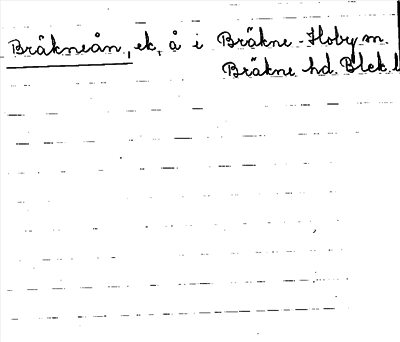 Bräkneån, ek. å i Bräkne-Hoby m.
Bräkne hd Blek. l